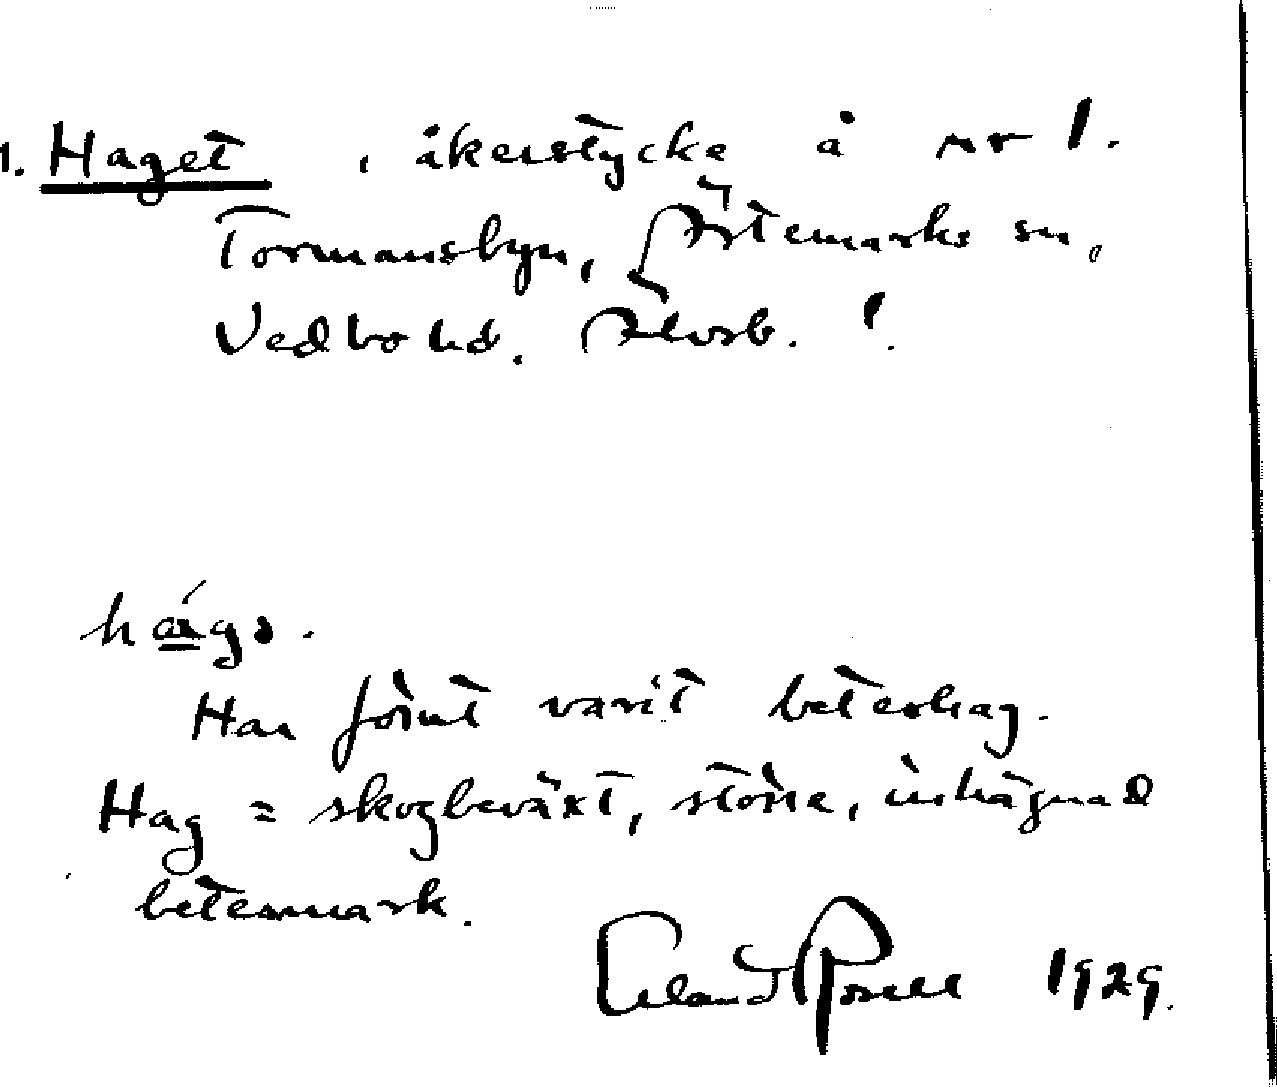 1. Haget, åkerstycke å nr 1.
Tormansbyn, Ärtemarks sn,
Vedbo hd. Älvsb. l.
Har förut varit beteshag.
Hag = skogbeväxt, större, inhägnad
betesmark.
Erland Rosell 1929.